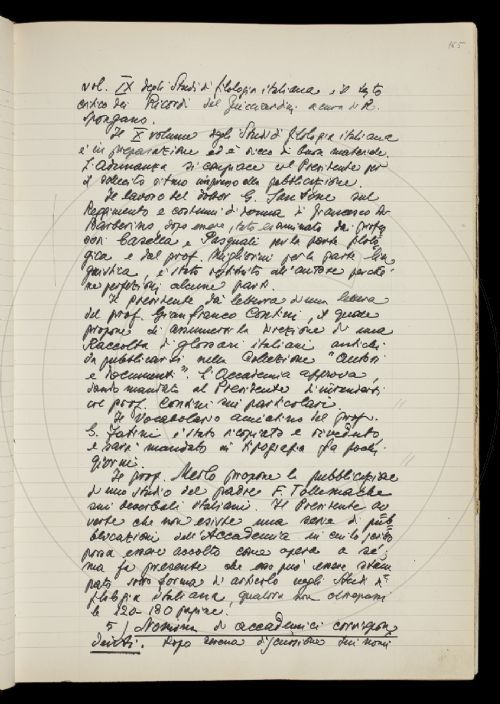 165
vol. IX degli Studi di filologia italiana e il testo
critico dei Ricordi del Guicciardini a cura di R.
Spongano.
Il X volume degli Studi di filologia italiana
è in preparazione ed è ricco di buon materiale.
L'Adunanza si compiace col Presidente per
il sollecito ritmo impresso alla pubblicazione.
Il lavoro del dottor G. Sansone sul
Reggimento e costumi di donna di Francesco da
Barberino, dopo essere stato esaminato dai proff.
Casella e Pasquali per la parte filolo
gica e dal prof. Migliorini per la parte lin
guistica, è stato restituito all'autore perché
ne perfezioni alcune parti.
Il presidente dà lettura di una lettera
del prof. Gianfranco Contini, il quale
propone di assumersi la direzione di una
Raccolta di glossari italiani antichi
da pubblicarsi nella Collezione "Autori
e documenti". L'Accademia approva,
dando mandato al Presidente d'intendersi
col prof. Contini sui particolari.
Il Vocabolario amiatino del prof.
G. Fatini è stato ricopiato e riveduto
e sarà mandato in tipografia fra pochi
giorni.
Il prof. Merlo propone la pubblicazione
di uno studio del padre F. Tollemache
sui deverbali italiani. Il Presidente av
verte che non esiste una serie di pub
blicazioni dell'Accademia in cui lo scritto
possa essere accolto come opera a sé,
ma fa presente che esso può essere stam
pato sotto forma di articolo negli Studi di
filologia italiana, qualora non oltrepassi
le 120-130 pagine.
5) Nomina di accademici corrispon
denti. Dopo ampia discussione sui nomi